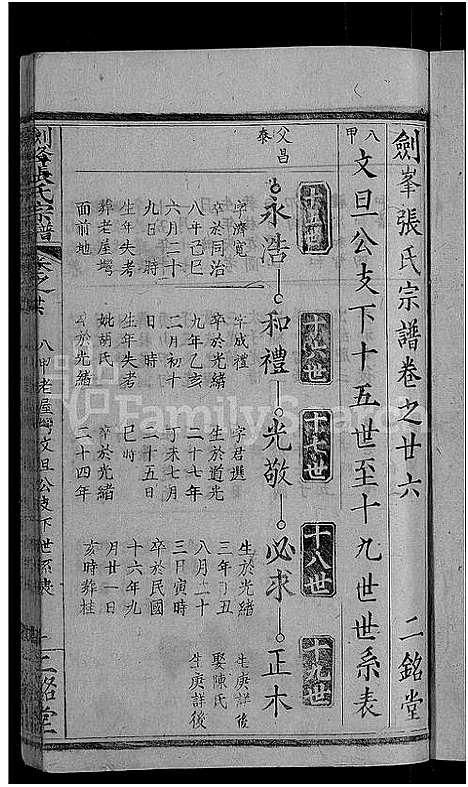 劍峯張氏宗譜卷之廿六　二銘堂
八甲
文旦公支下十五世至十九世世系表
父昌泰
十五世
十六世
十七世
十八世
十九世
永浩
和禮
光敬
必求
正木
字濟寬
卒於同治
八年己巳
六月二十
九日 時
生年失考
葬老屋塆
面前地
字成禮
卒於光緒
九年乙亥
二月初十
日 時
生年失考
妣胡氏
卒於光緒
字君選
生於道光
二十七年
丁未七月
二十五日
巳時
卒於光緒
二十四年
生於光緒
三年丁丑
八月二十
三日寅時
卒於民國
十六年九
月廿一日
亥時葬桂
生庚詳後
娶陳氏
生庚詳後
劍峯張氏宗譜
卷之廿六
八甲老屋塆文旦公支下世系表
一
二銘堂
FamilySearch